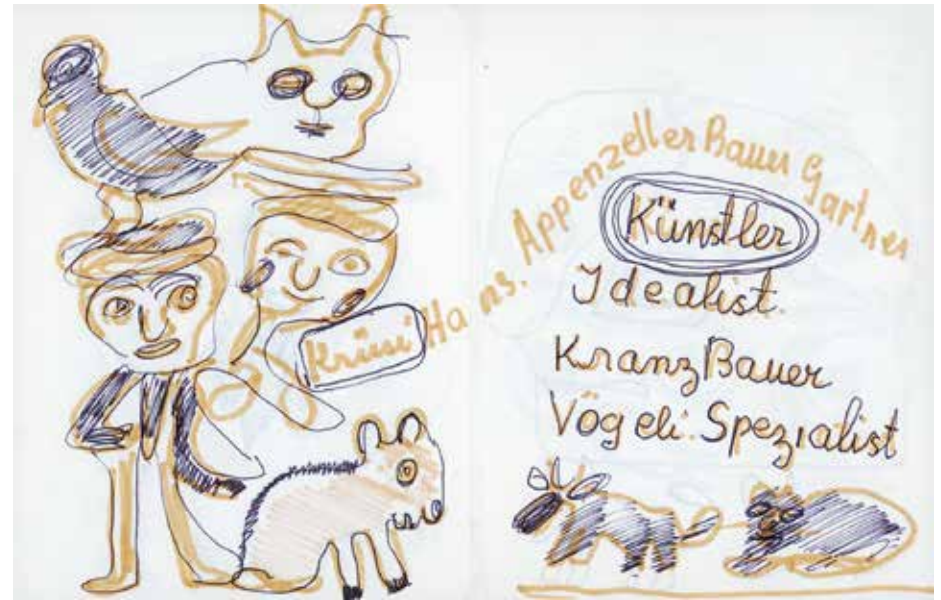 Krüsi Hans. Appenzeller Bauer Gartner
Künstler
Idealist.
KranzBauer
Vögeli. Spezialist